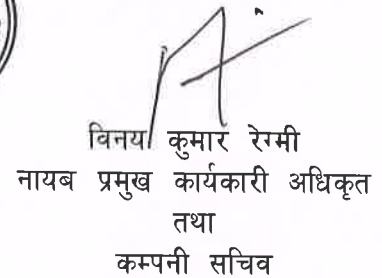 विनय कुमार रेग्मी
नायब प्रमुख कार्यकारी अधिकृत
तथा
कम्पनी सचिव